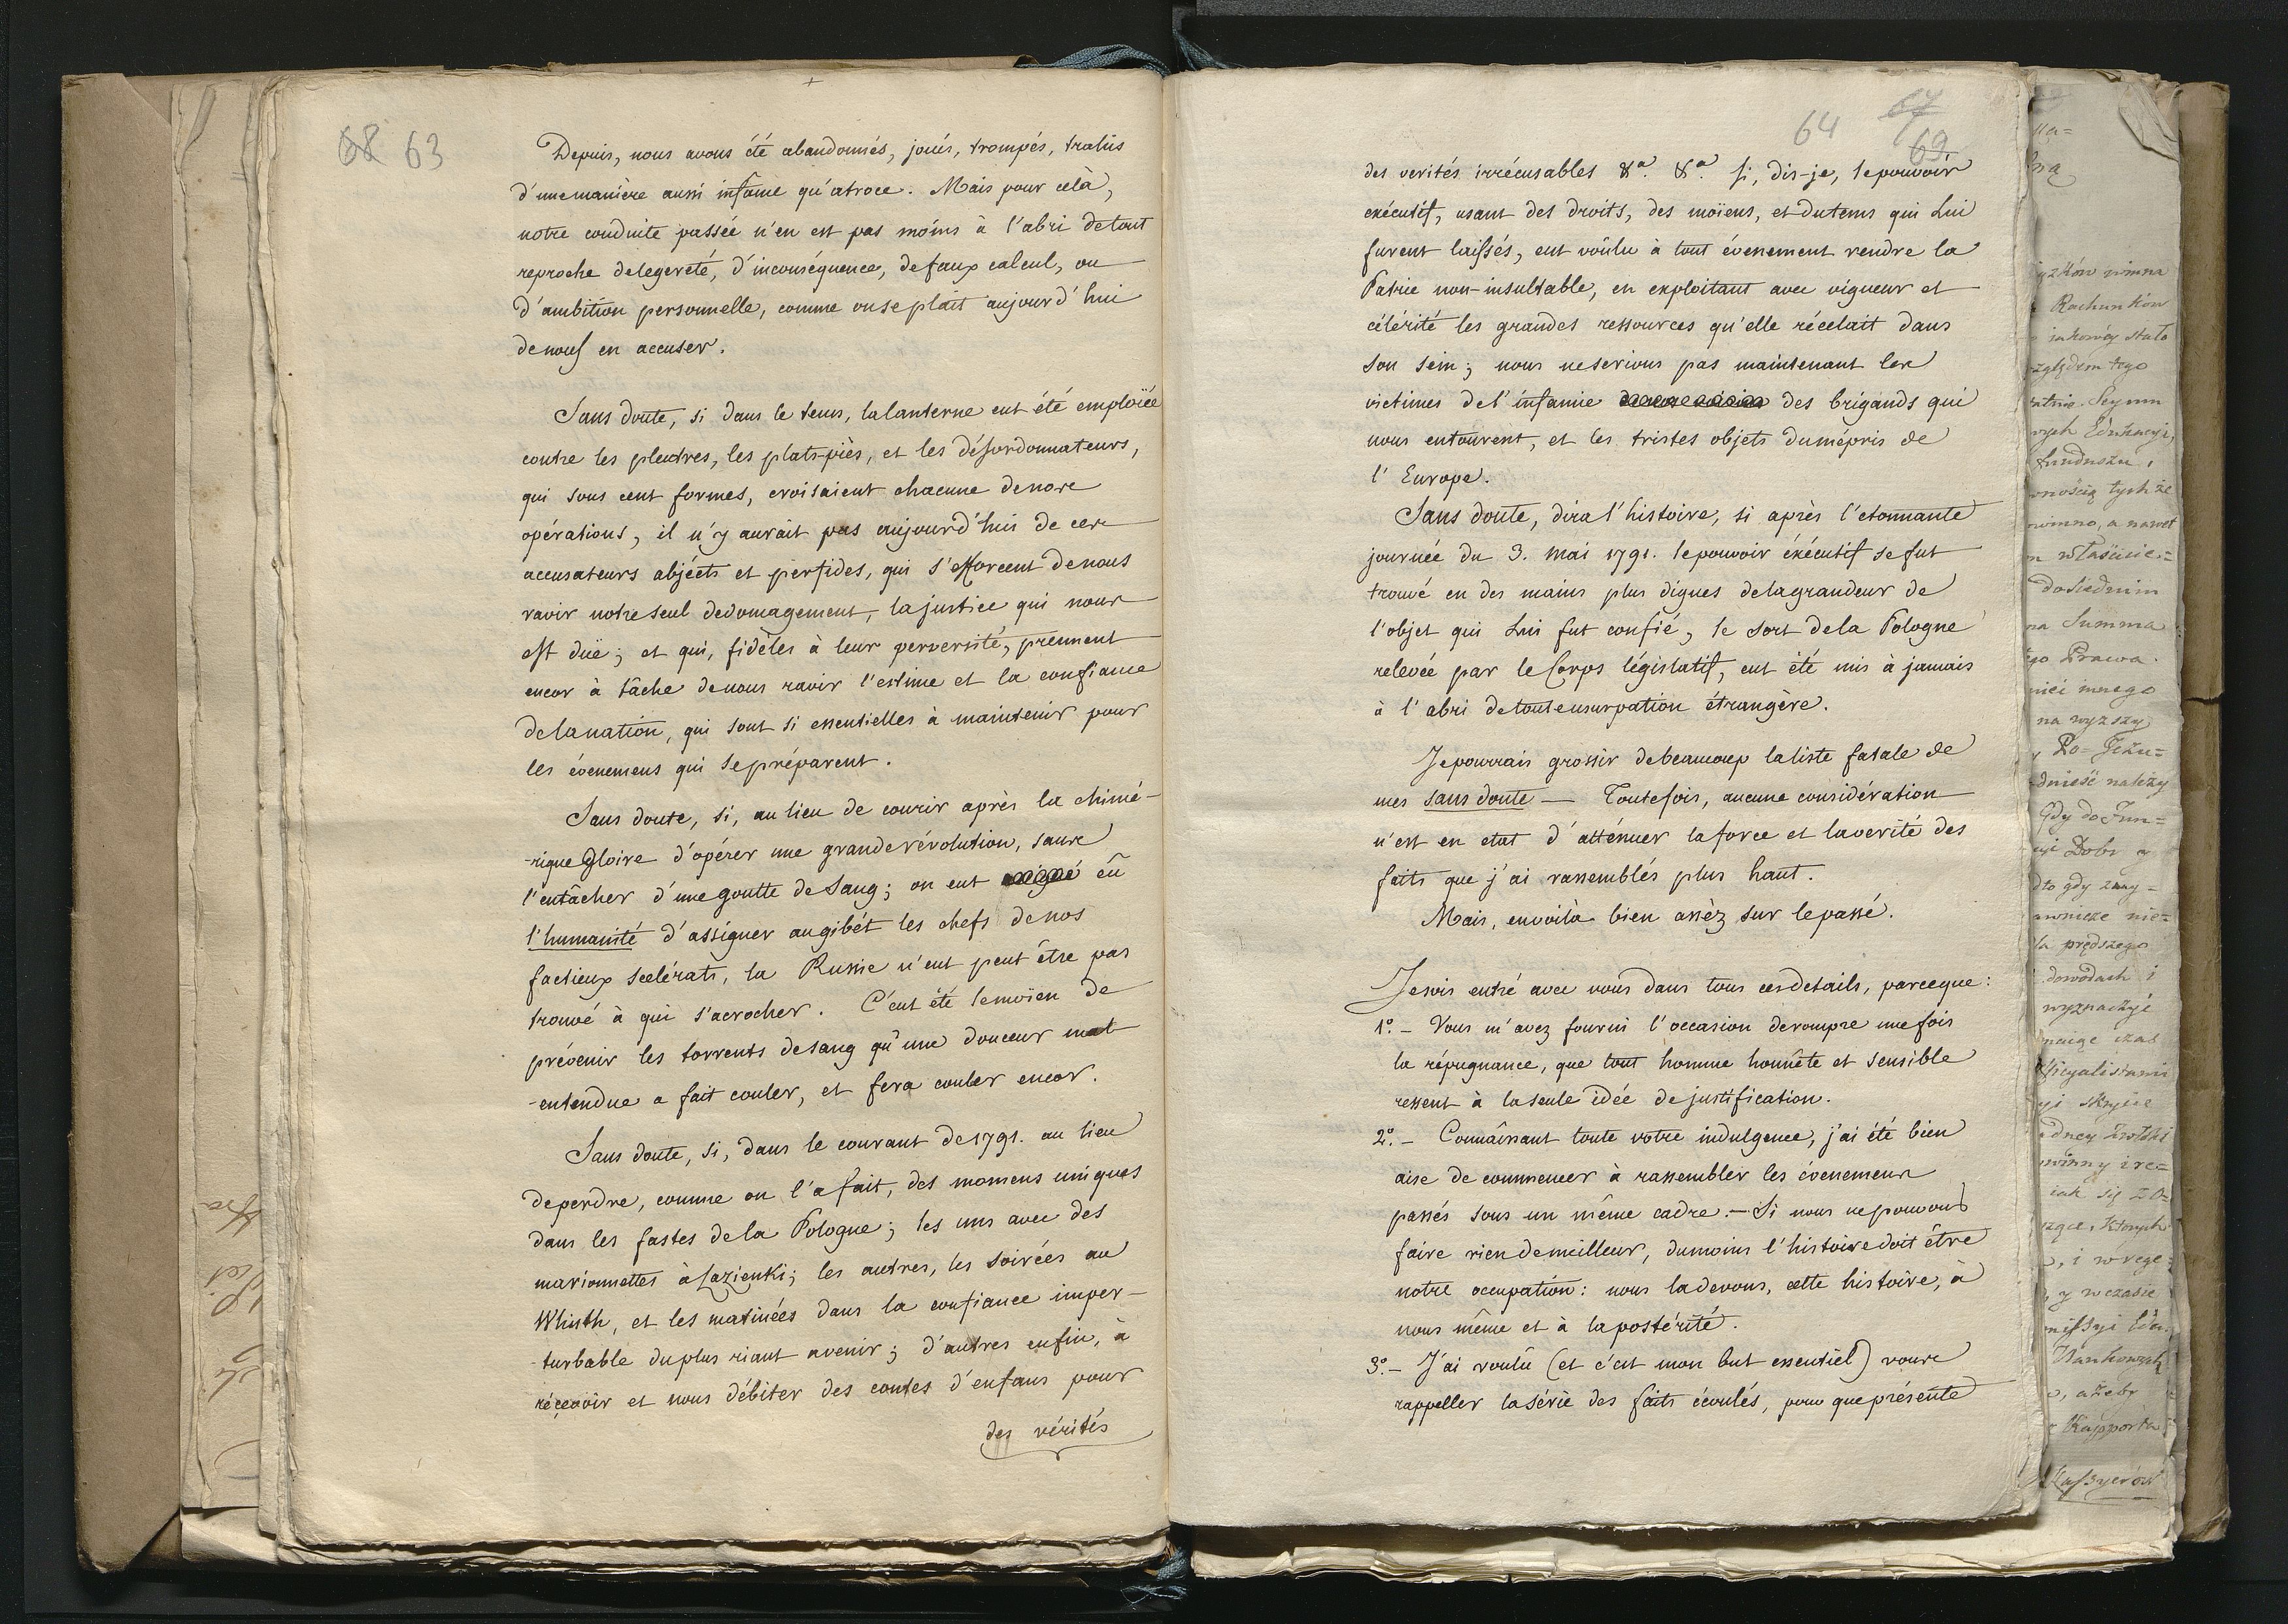 68 63
Depuis, nous avons été abandonnés, joués, trompés, trahis
d'une manière aussi infâme qu'atroce. Mais pour celà,
notre conduite passée n'en est pas moins à l'abri de tout
reproche de legereté, d'inconséquence, de faux calcul, ou
d'ambition personnelle, comme on se plait aujourd'hui
de nous en accuser.
Sans doute, si dans le tems, la lanterne eut été emploïée
contre les pleutres, les plats-piès, et les désordonnateurs,
qui sous cent formes, croisaient chacune de nos
opérations, il n'y aurait pas aujourd'hui de ces
accusateurs abjects et perfides, qui s'efforcent de nous
ravir notre seul dedomagement, la justice qui nous
est düe; et qui, fidèles à leur perversité, prennent
encor à tâche de nous ravir l'estime et la confiance
de la nation, qui sont si essentielles à maintenir pour
les évenemens qui se préparent.
Sans doute, si, au lieu de courir après la chimé-
-rique gloire d'opérer une grande révolution, sans
l'entâcher d'une goutte de sang; on eut eû
l'humanité d'assigner au gibét les chefs de nos
factieux scelérats, la Russie n'eut peut être pas
trouvé à qui s'acrocher. C'eut été le moïen de
prévenir les torrents de sang qu'une douceur mal
-entendue a fait couler, et fera couler encor.
Sans doute, si, dans le courant de 1791. au lieu
de perdre, comme on l'a fait, des momens uniques
dans les fastes de la Pologne; les uns avec des
marionnettes à Lazienki; les autres, les soirées au
Whisth, et les matinées dans la confiance imper-
-turbable du plus riant avenir; d'autres enfin, à
réçevoir et nous débiter des contes d'enfans pour
des vérités
64 67
69
des verités irrécusables &a. &a. si, dis-je, le pouvoir
exécutif, usant des droits, des moïens, et du tems qui Lui
furent laissés, eut voûlu à tout évenement rendre la
Patrie non-insultable, en exploitant avec vigueur et
célérité les grandes ressources qu'elle récelait dans
son sein; nous ne serions pas maintenant les
victimes de l'infamie des brigands qui
nous entourent, et les tristes objets du mépris de
l'Europe.
Sans doute, dira l'histoire, si après l'etonnante
journée du 3. mai 1791. le pouvoir éxécutif se fut
trouvé en des mains plus dignes de la grandeur de
l'objet qui Lui fut confié, le sort de la Pologne
relevée par le Corps législatif, eut été mis à jamais
à l'abri de toute usurpation étrangère.
Je pourrais grossir de beaucoup la liste fatale de
mes sans doute — Toutefois, aucune considération
n'est en etat d'atténuer la force et la verité des
faits que j'ai rassemblés plus haut.
Mais, en voilà bien assèz sur le passé.
Je suis entré avec vous dans tous ces details, parceque:
1º. – Vous m'avez fourni l'occasion de rompre une fois
la répugnance, que tout homme honnête et sensible
ressent à la seule idée de justification.
2º. – Connaissant toute votre indulgence, j'ai été bien
aise de commencer à rassembler les évenemens
passés sous un même cadre. – Si nous ne pouvons
faire rien de meilleur, du moins l'histoire doit être
notre occupation: nous la devons, cette histoire, à
nous même et à la postérité.
3º. – J'ai voulû (et c'est mon but essentiel) vous
rappeller la série des faits écoulés, pour que présente